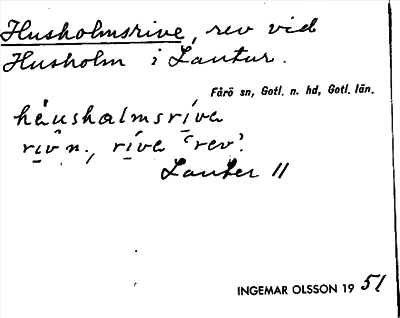 Husholmsrive, rev vid
Husholm i Lautur.
Fårö sn, Gotl. n. hd, Gotl. län.
håusholmsríva
riv n., ríva 'rev'.
Lauter 11
INGEMAR OLSSON 19 51